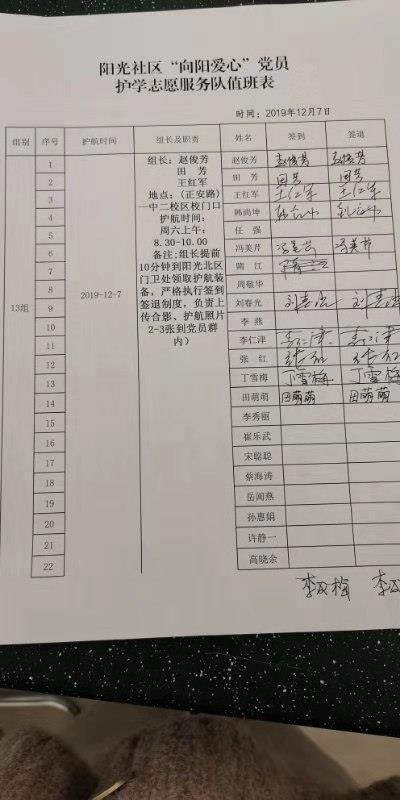 阳光社区“向阳爱心”党员
护学志愿服务队值班表
时间：2019年12月7日
组别 序号 护航时间 组长及职责 姓名 签到 签退
13组
2019-12-7
组长：赵俊芳
田 芳
王红军
地点：（正安路）
一中二校区校门口
护航时间：
周六上午：
8.30-10.00
备注;组长提前
10分钟到阳光北区
门卫处领取护航装
备，严格执行签到
签退制度，负责上
传合影、护航照片
2-3张到党员群
内）
1 赵俊芳 赵俊芳 赵俊芳
2 田 芳 田芳 田芳
3 王红军
4 韩尚坤
5 任 强
6 冯美芹 冯美芹
7 隋 江
8 周敬华
9 刘春光
10 李 燕
11 李仁津 李仁津 李仁津
12 张 红 张红 张红
13 丁雪梅 丁雪梅 丁雪梅
14 田萌萌 田萌萌 田萌萌
15 李秀丽
16 崔乐武
17 宋聪聪
18 蔡海涛
19 岳闻燕
20 孙惠娟
21 许静一
22 高晓余